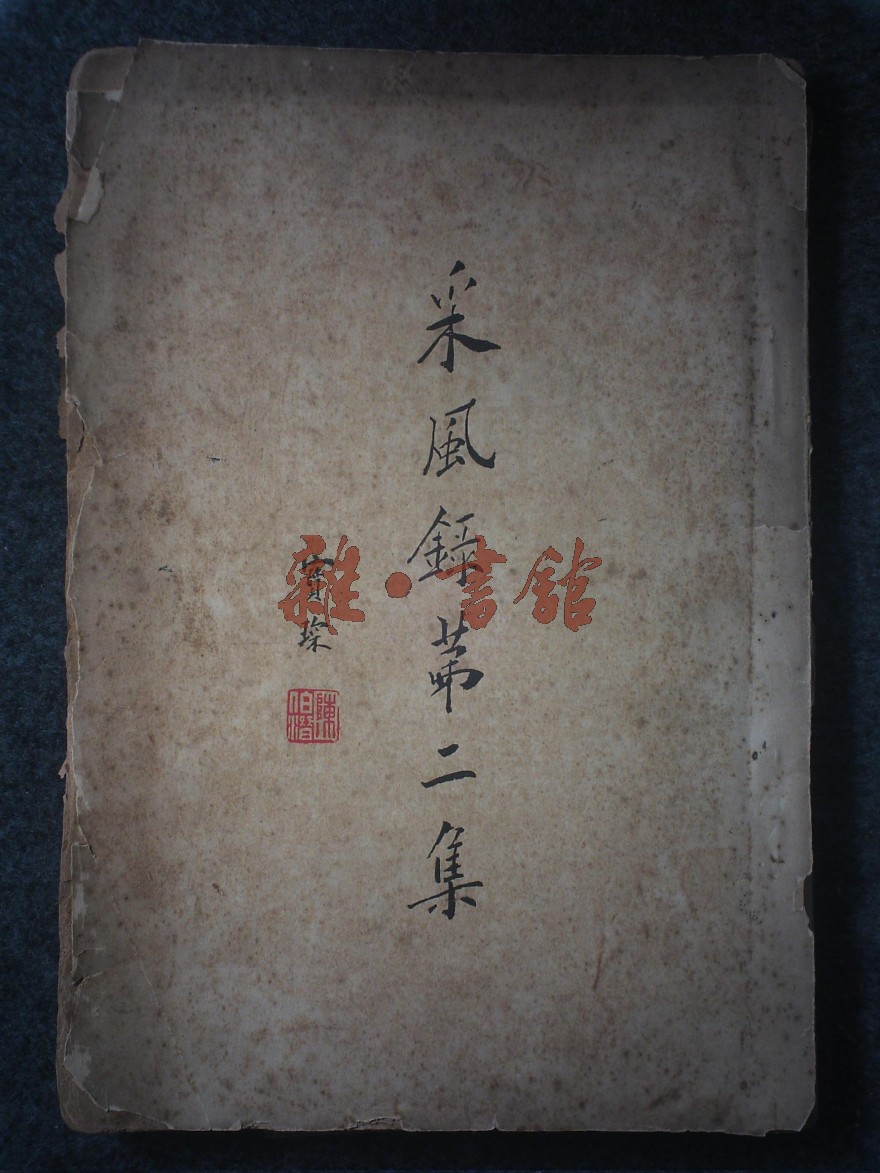 采風錄第二集
寶琛
陳伯潛
雜·書館